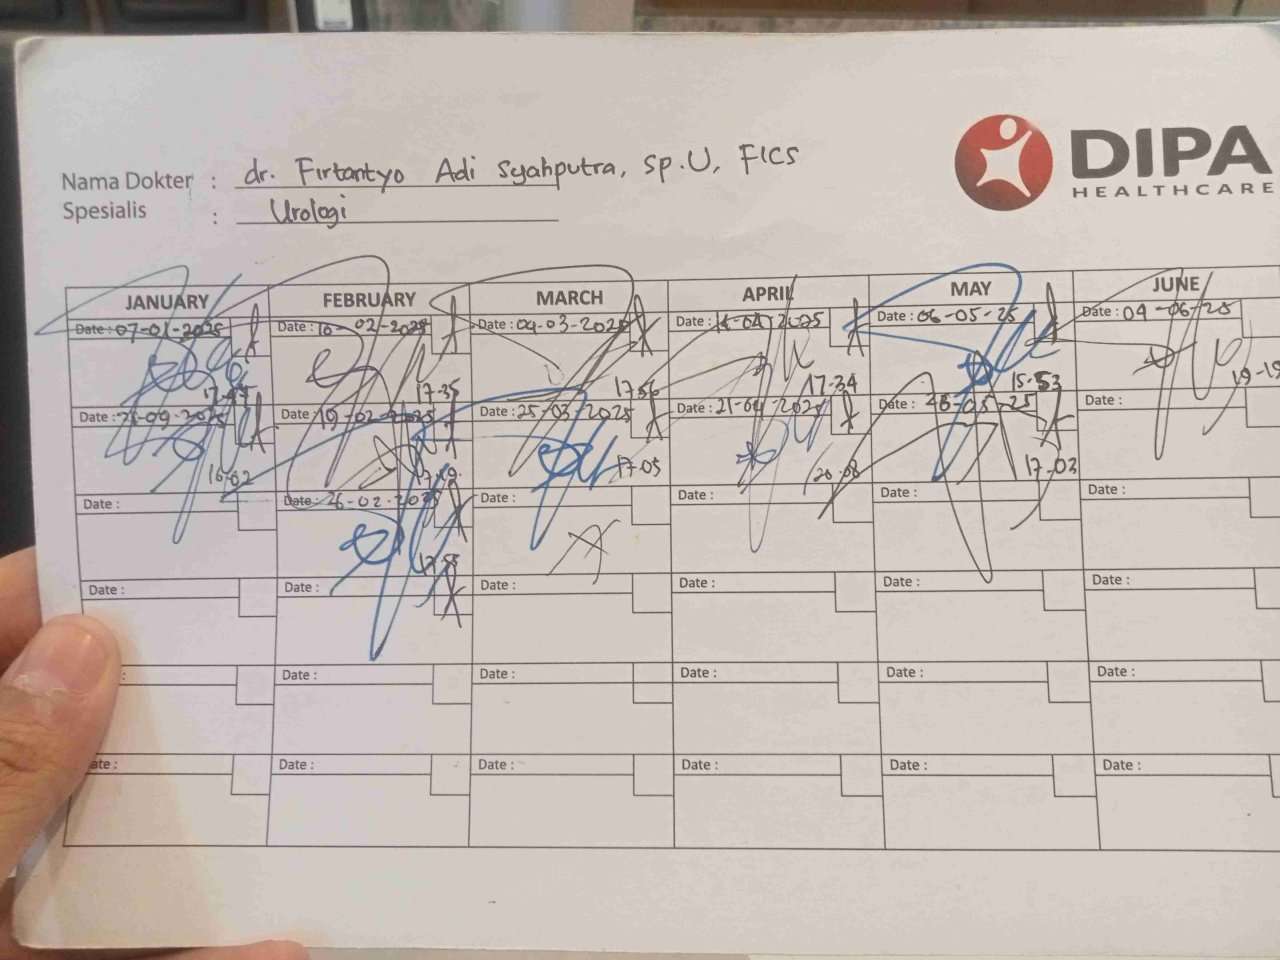 DIPA
HEALTHCARE
Nama Dokter : dr. Firtantyo Adi Syahputra, Sp.U, FICS
Spesialis : Urologi
JANUARY FEBRUARY MARCH APRIL MAY JUNE
Date : 07-01-2025 Date : 10-02-2025 Date : 04-03-2025 Date : 14-04-2025 Date : 06-05-25 Date : 04-06-25
17-47 17-35 17-56 17-34 15-53 19-19
Date : Date : 19-02-2025 Date : 25-03-2025 Date : 21-04-2025 Date : Date :
16-02 17-19 17-05 20-08 17-03
Date : Date : 26-02-2025 Date : Date : Date : Date :
17-55
Date : Date : Date : Date : Date : Date :
Date : Date : Date : Date : Date :
ate : Date : Date : Date : Date : Date :